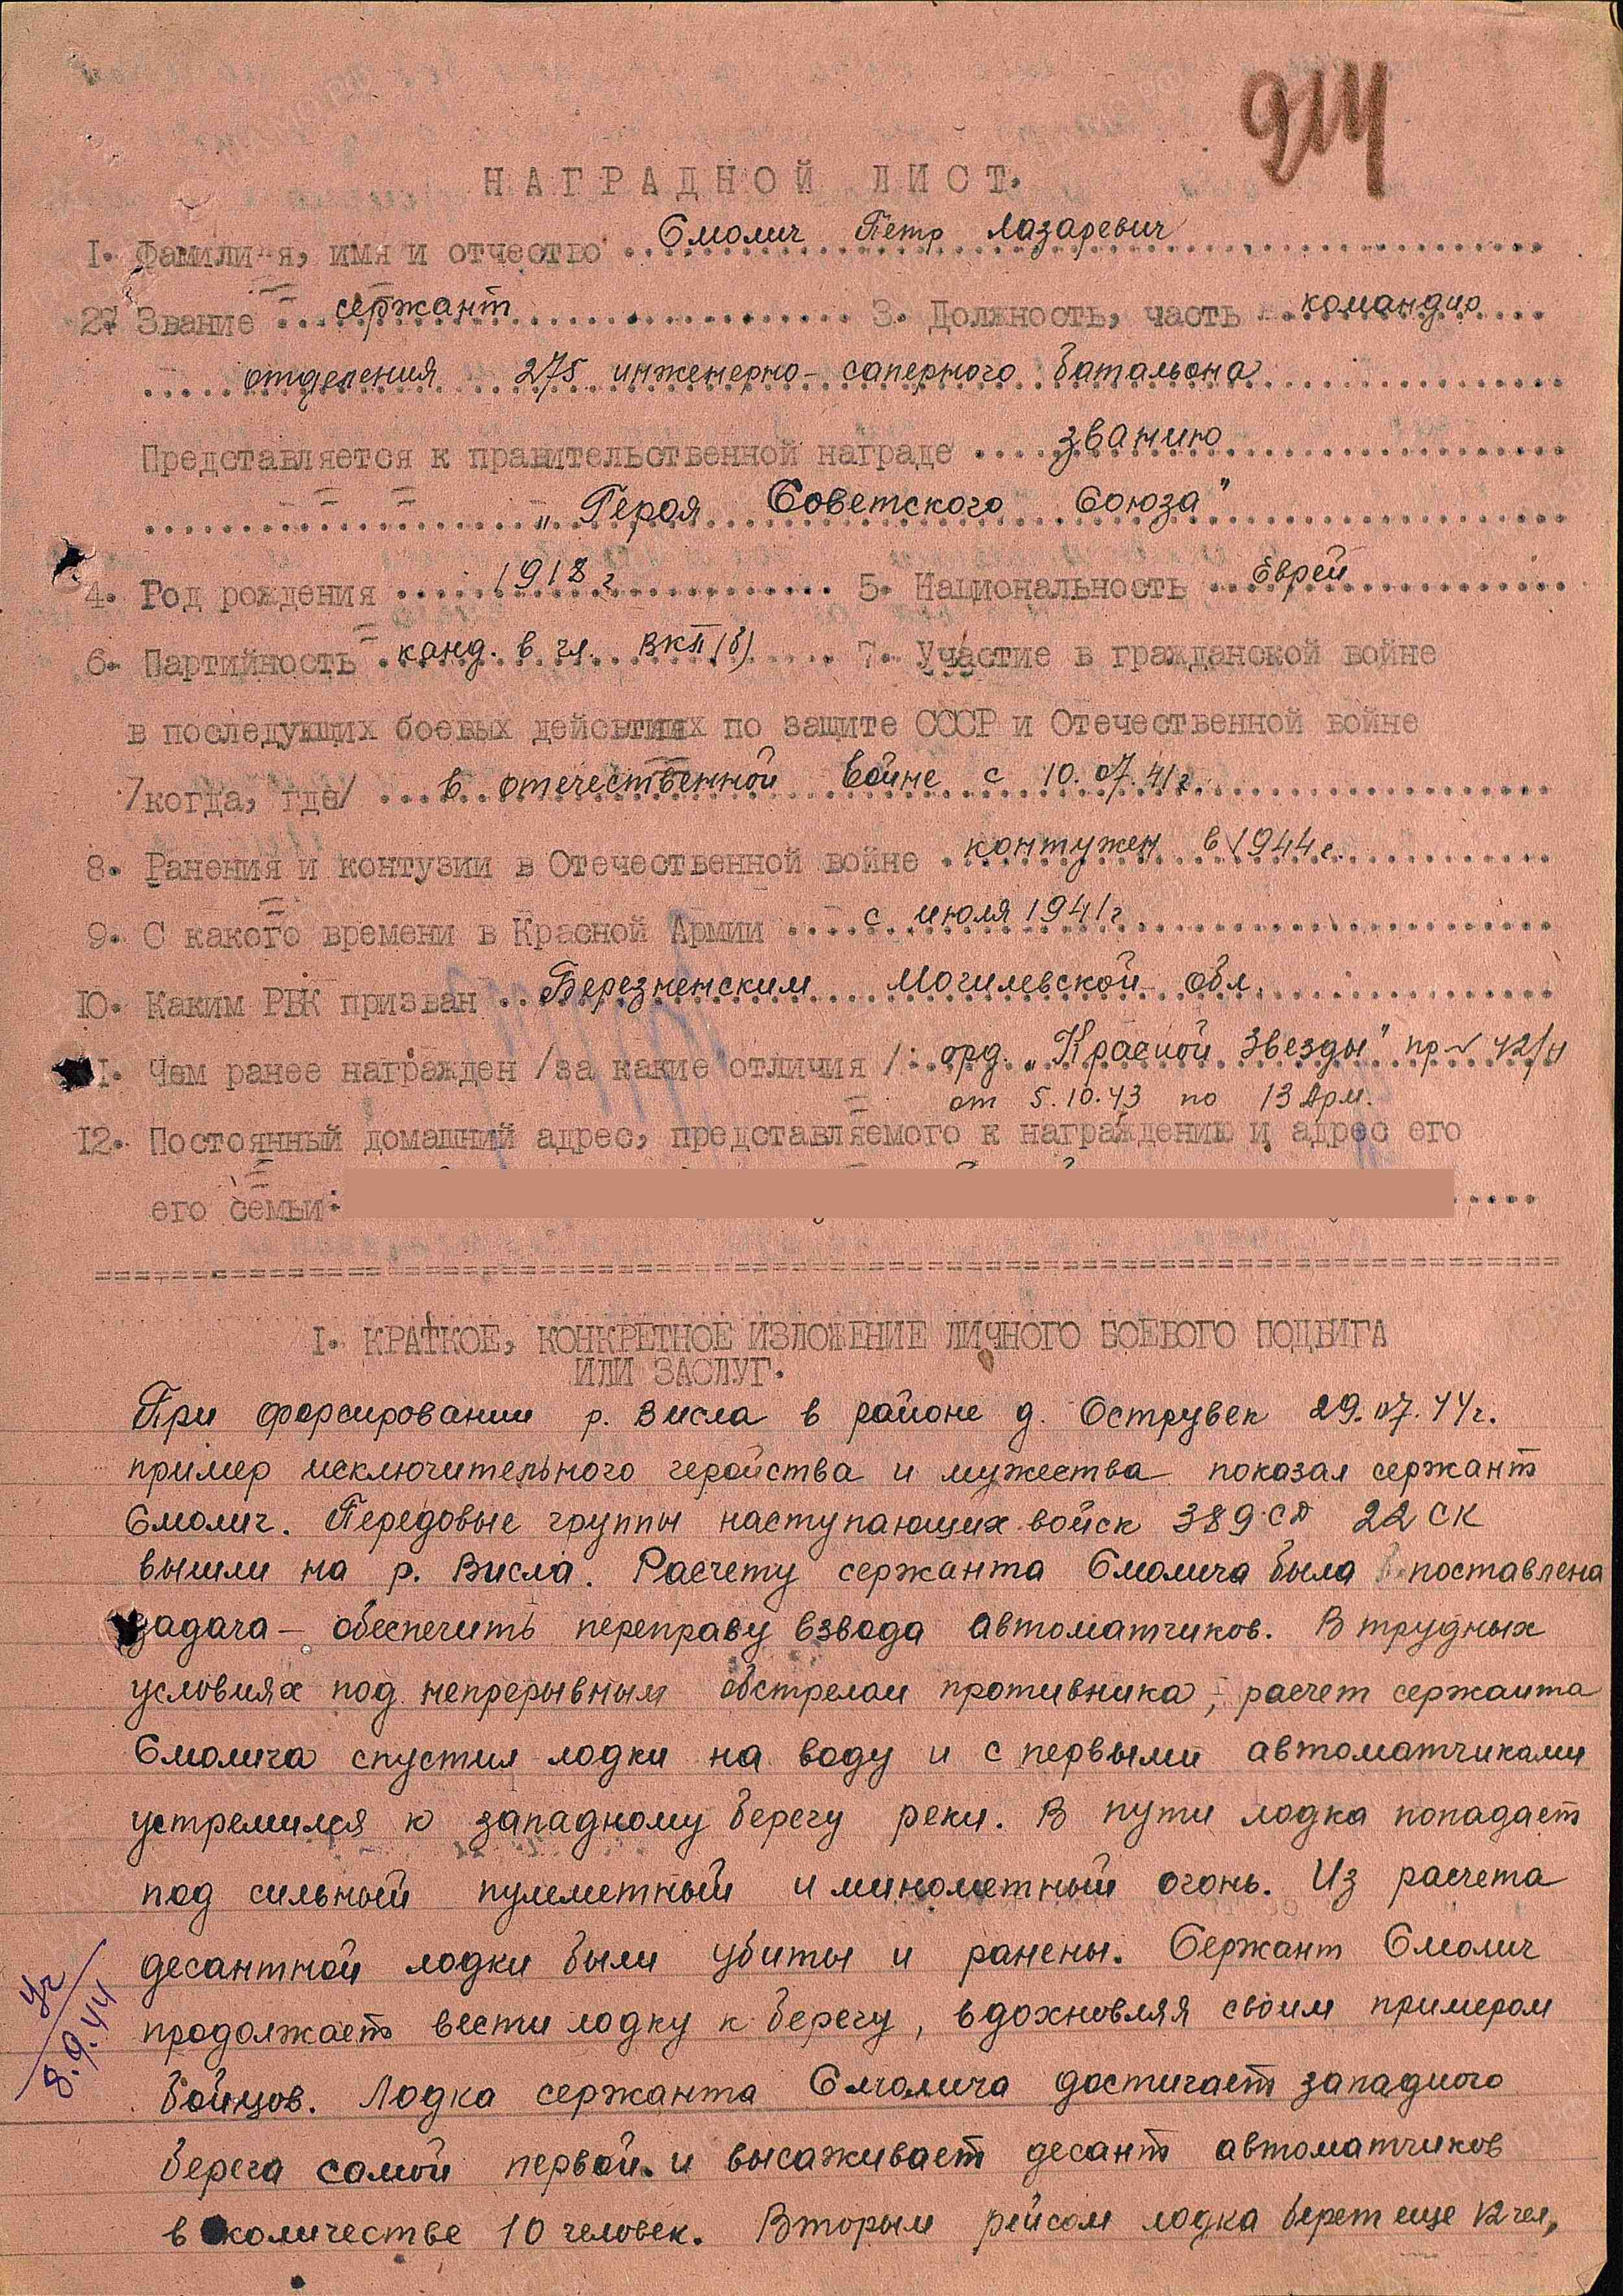 914
НАГРАДНОЙ ЛИСТ.
1. Фамили-я, имя и отчество Смолич Петр Лазаревич
2. Звание сержант 3. Должность, часть командир
отделения 275 инженерно-саперного батальона
Представляется к правительственной награде званию
„Героя Советского Союза"
4. Год рождения 1918 г 5. Национальность Еврей
6. Партийность канд. в чл. ВКП(б) 7. Участие в гражданской войне
в последующих боевых действиях по защите СССР и Отечественной войне
/когда, где/ в отечественной войне с 10.07.41г.
8. Ранения и контузии в Отечественной войне контужен в 1944г.
9. С какого времени в Красной Армии с июля 1941г
10. Каким РВК призван Березненским Могилевской обл.
11. Чем ранее награжден /за какие отличия/: орд. „Красной Звезды" пр № 42/н
от 5.10.43 по 13 Арм.
12. Постоянный домашний адрес, представляемого к награждению и адрес его
его семьи:
I. КРАТКОЕ, КОНКРЕТНОЕ ИЗЛОЖЕНИЕ ЛИЧНОГО БОЕВОГО ПОДВИГА
ИЛИ ЗАСЛУГ.
При форсировании р. Висла в районе д. Острувек 29.07.44г.
пример исключительного геройства и мужества показал сержант
Смолич. Передовые группы наступающих войск 389 СД 22 СК
вышли на р. Висла. Расчету сержанта Смолича была поставлена
задача – обеспечить переправу взвода автоматчиков. В трудных
условиях под непрерывным обстрелом противника, расчет сержанта
Смолича спустил лодки на воду и с первыми автоматчиками
устремился к западному берегу реки. В пути лодка попадает
под сильный пулеметный и минометный огонь. Из расчета
десантной лодки были убиты и ранены. Сержант Смолич
продолжает вести лодку к берегу, вдохновляя своим примером
бойцов. Лодка сержанта Смолича достигает западного
берега самой первой и высаживает десант автоматчиков
в количестве 10 человек. Вторым рейсом лодка берет еще 12 чел,
8.9.44